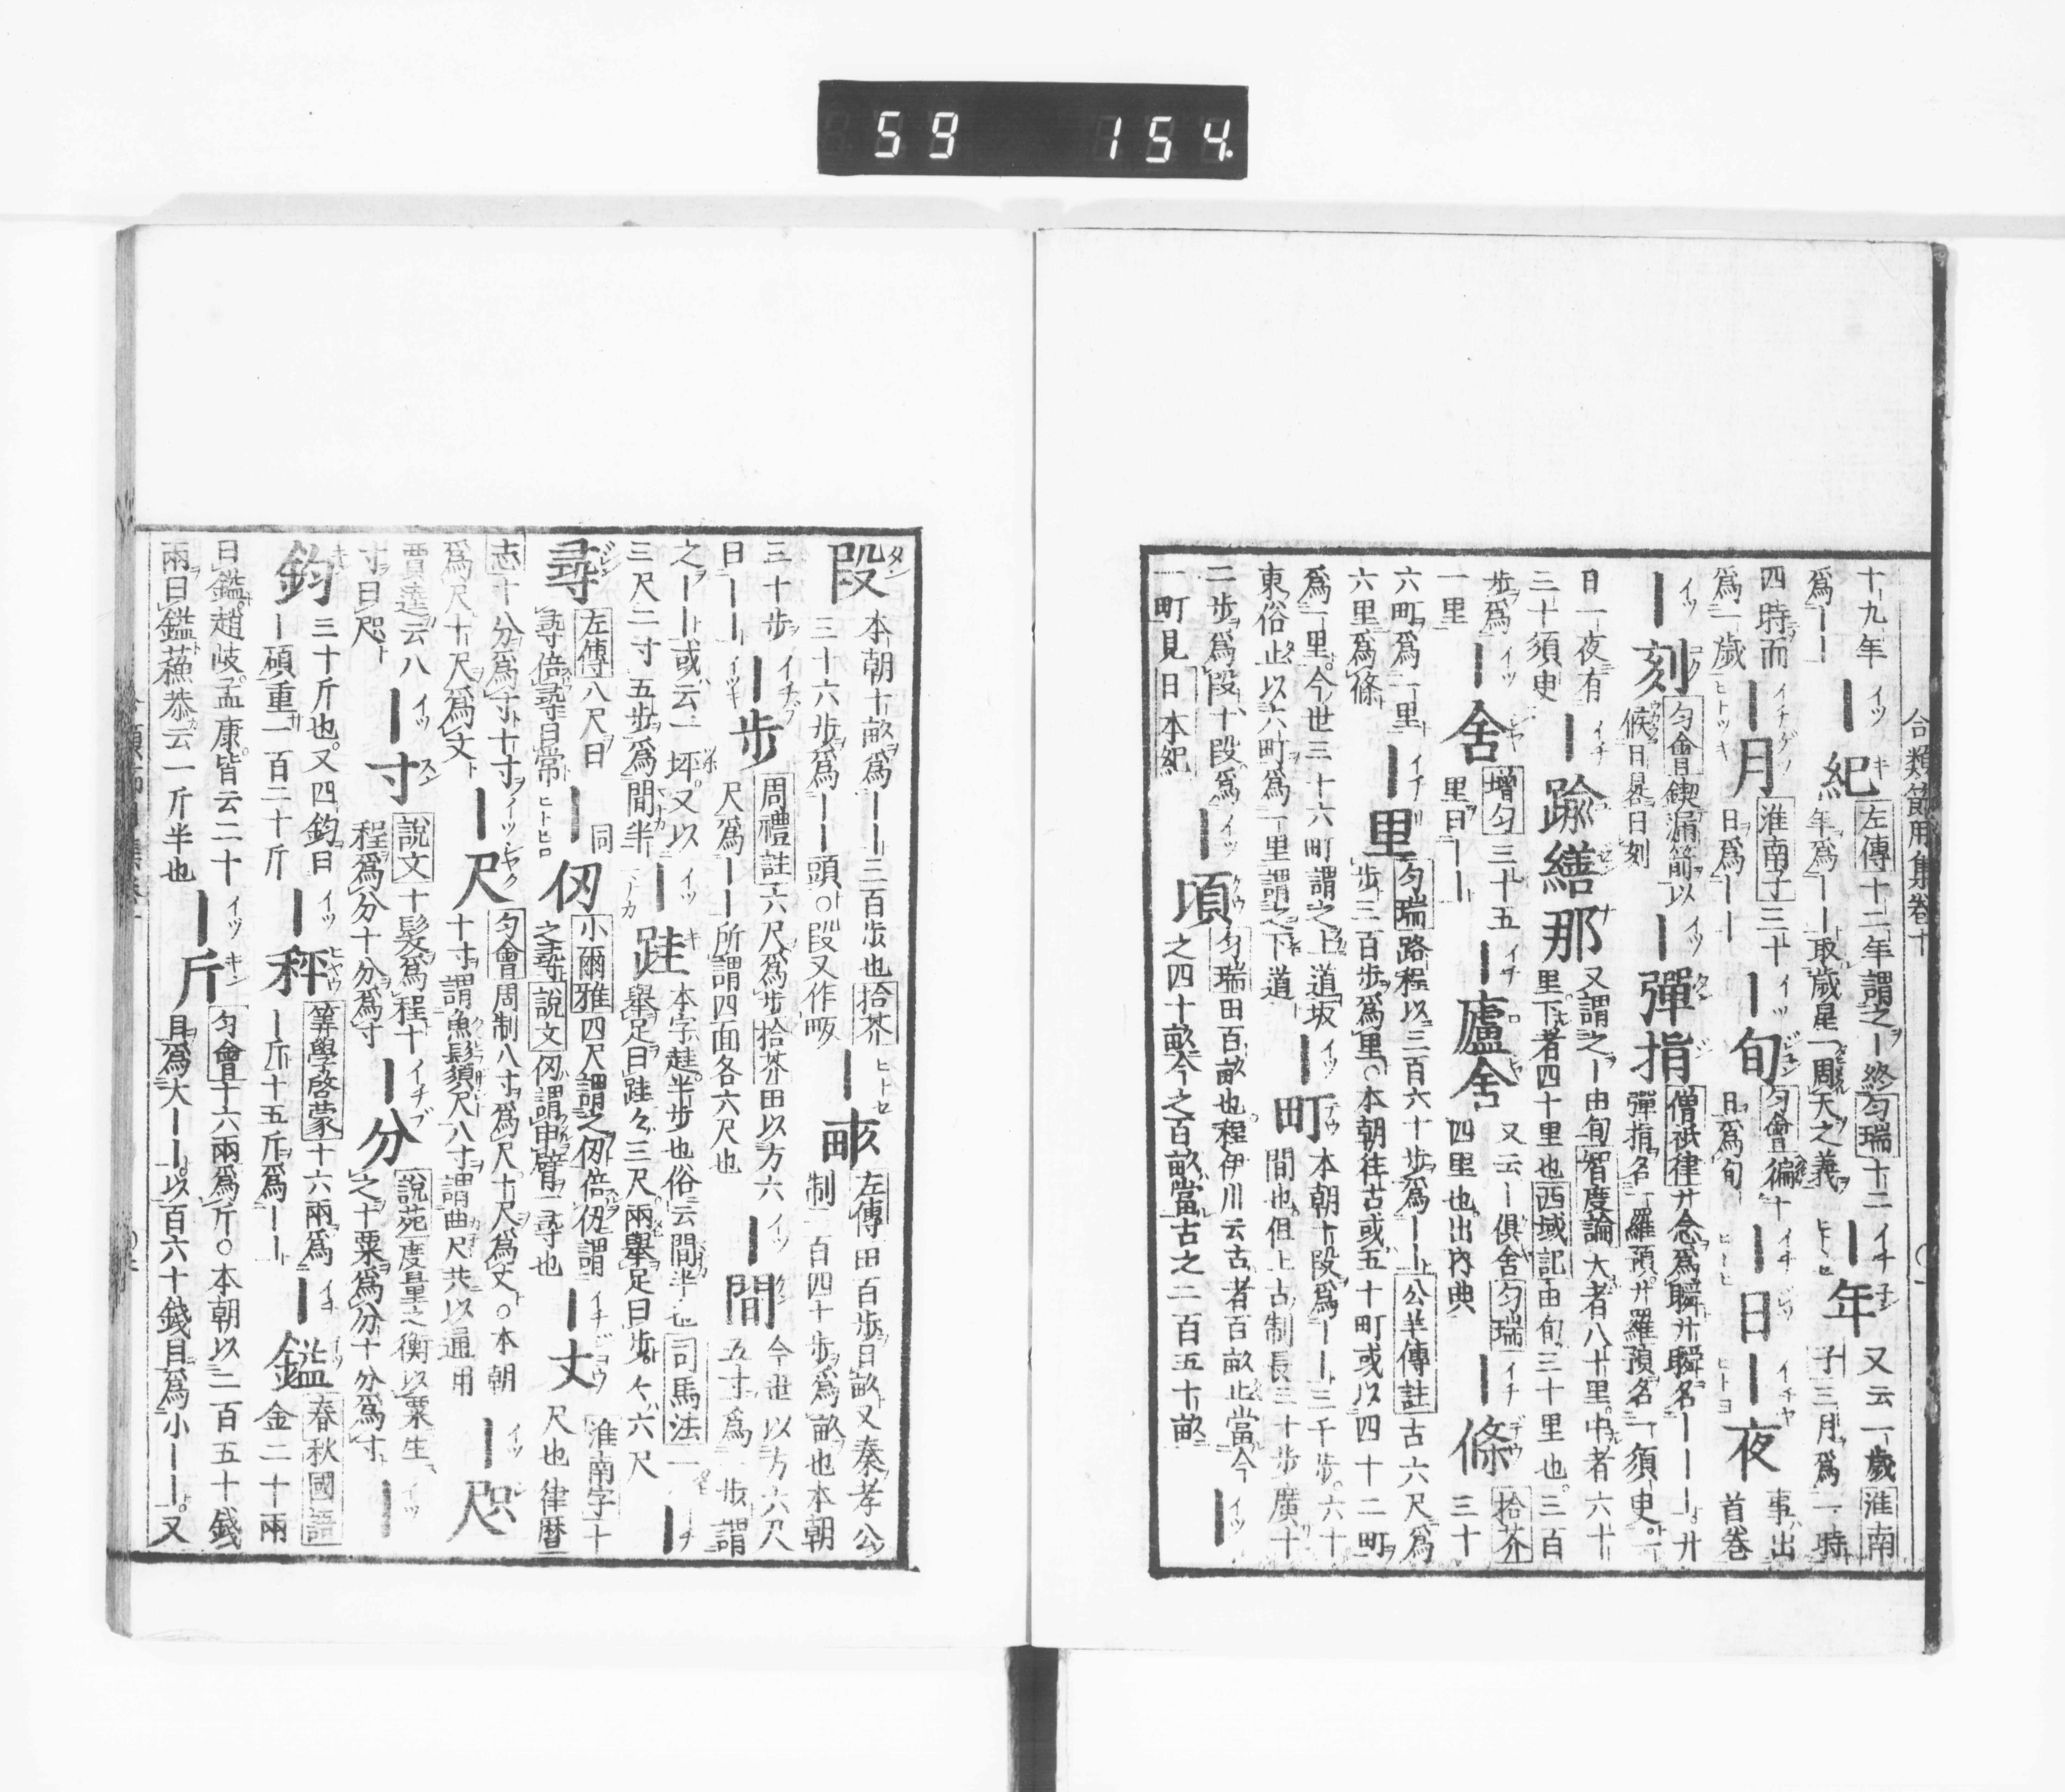 59 154
合類節用集卷十
十九年
爲――
―紀 左傳十二年謂之―終 匀瑞 十二
年爲――取歲星一周天之義
―年 又云一歲 淮南
子 三月爲一時
四時而
爲一歲
―月 淮南子 三十
日爲――
―旬 匀會 徧十
日爲旬
―日―夜 事出
首卷
―刻 匀會 鍥漏箭以
候日晷日刻
―彈指 僧祇律 廿念爲瞬廿瞬名―――廿
彈指名一羅預廿羅預名一須臾一
日一夜有
三十須臾
―踰繕那 又謂之―由旬 智度論 大者八十里中者六十
里下者四十里也 西域記 由旬三十里也三百
步爲
一里
―舍 增匀 三十五
里曰――
―廬舍 又云―俱舍 匀瑞
四里也出內典
―條 拾芥
三十
六町爲一里
六里爲條
―里 匀瑞 路程以三百六十步爲―― 公羊傳註 古六尺爲
步三百步爲里○本朝往古或五十町或以四十二町
爲一里今世三十六町謂之上道坂
東俗止以六町爲一里謂之下道
―町 本朝十段爲――三千步六十
間也但上古制長三十步廣十
二步爲段十段爲
一町見 日本紀
―頃 匀瑞 田百畝也程伊川云古者百畝止當今
之四十畝今之百畝當古之二百五十畝
―
段 本朝十畝爲――三百步也 拾芥
三十六步爲――頭○段又作㕞
―畝 左傳 田百步曰畝又秦孝公
制二百四十步爲畝也本朝
三十步
曰――
―步 周禮註 六尺爲步 拾芥 田以方六
尺爲――所謂四面各六尺也
―間 今世以方六尺
五寸爲一步謂
之――或云一坪又以
三尺二寸五步爲間半
―跬 本字趌半步也俗云間半也 司馬法 一
舉足曰跬々三尺兩舉足曰步々六尺
―
尋 左傳 八尺曰
尋倍尋曰常
―仞 同 小爾雅 四尺謂之仞倍仞謂
之尋 說文 仞謂申臂一尋也
―丈 淮南字 十
尺也律曆
志 十分爲寸十寸
爲尺十尺爲丈
―尺 匀會 周制八寸爲尺十尺爲丈○本朝
十寸謂魚鬚尺八寸謂曲尺共以通用
―咫
賈逵云八
寸曰咫
―寸 說文 十髮爲程十
程爲分十分爲寸
―分 說苑 度量之衡以粟生
之十粟爲分十分爲寸
―
鈞 三十斤也又四鈞曰
―碩重一百二十斤
―秤 筭學啓蒙 十六兩爲
―斤十五斤爲――
―鎰 春秋國語
金二十兩
曰鎰趙岐孟康皆云二十
兩曰鎰蘓恭云一斤半也
―斤 匀會 十六兩爲斤○本朝以二百五十錢
目爲大――以百六十錢目爲小――又